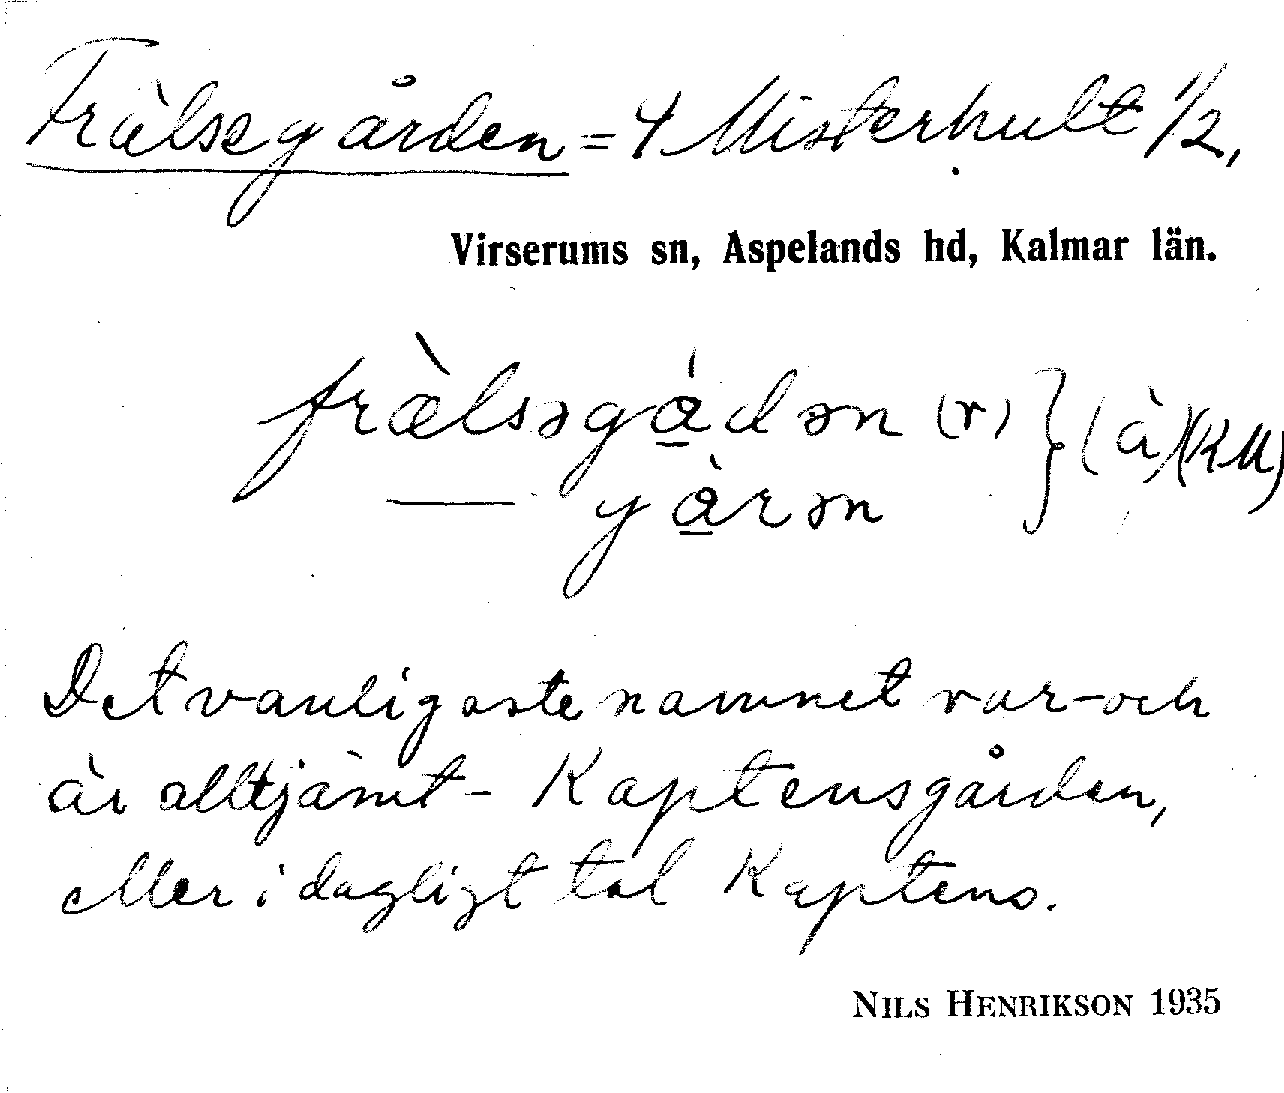 Frälsegården = 4 Misterhult 1/2,
Virserums sn, Aspelands hd, Kalmar län.
fræ̀lsəgá̱dən (r) } (à) (KM)
— gà̱rən
Det vanligaste namnet var - och
är alltjämt - Kaptensgården,
eller i dagligt tal Kaptens.
NILS HENRIKSON 1935